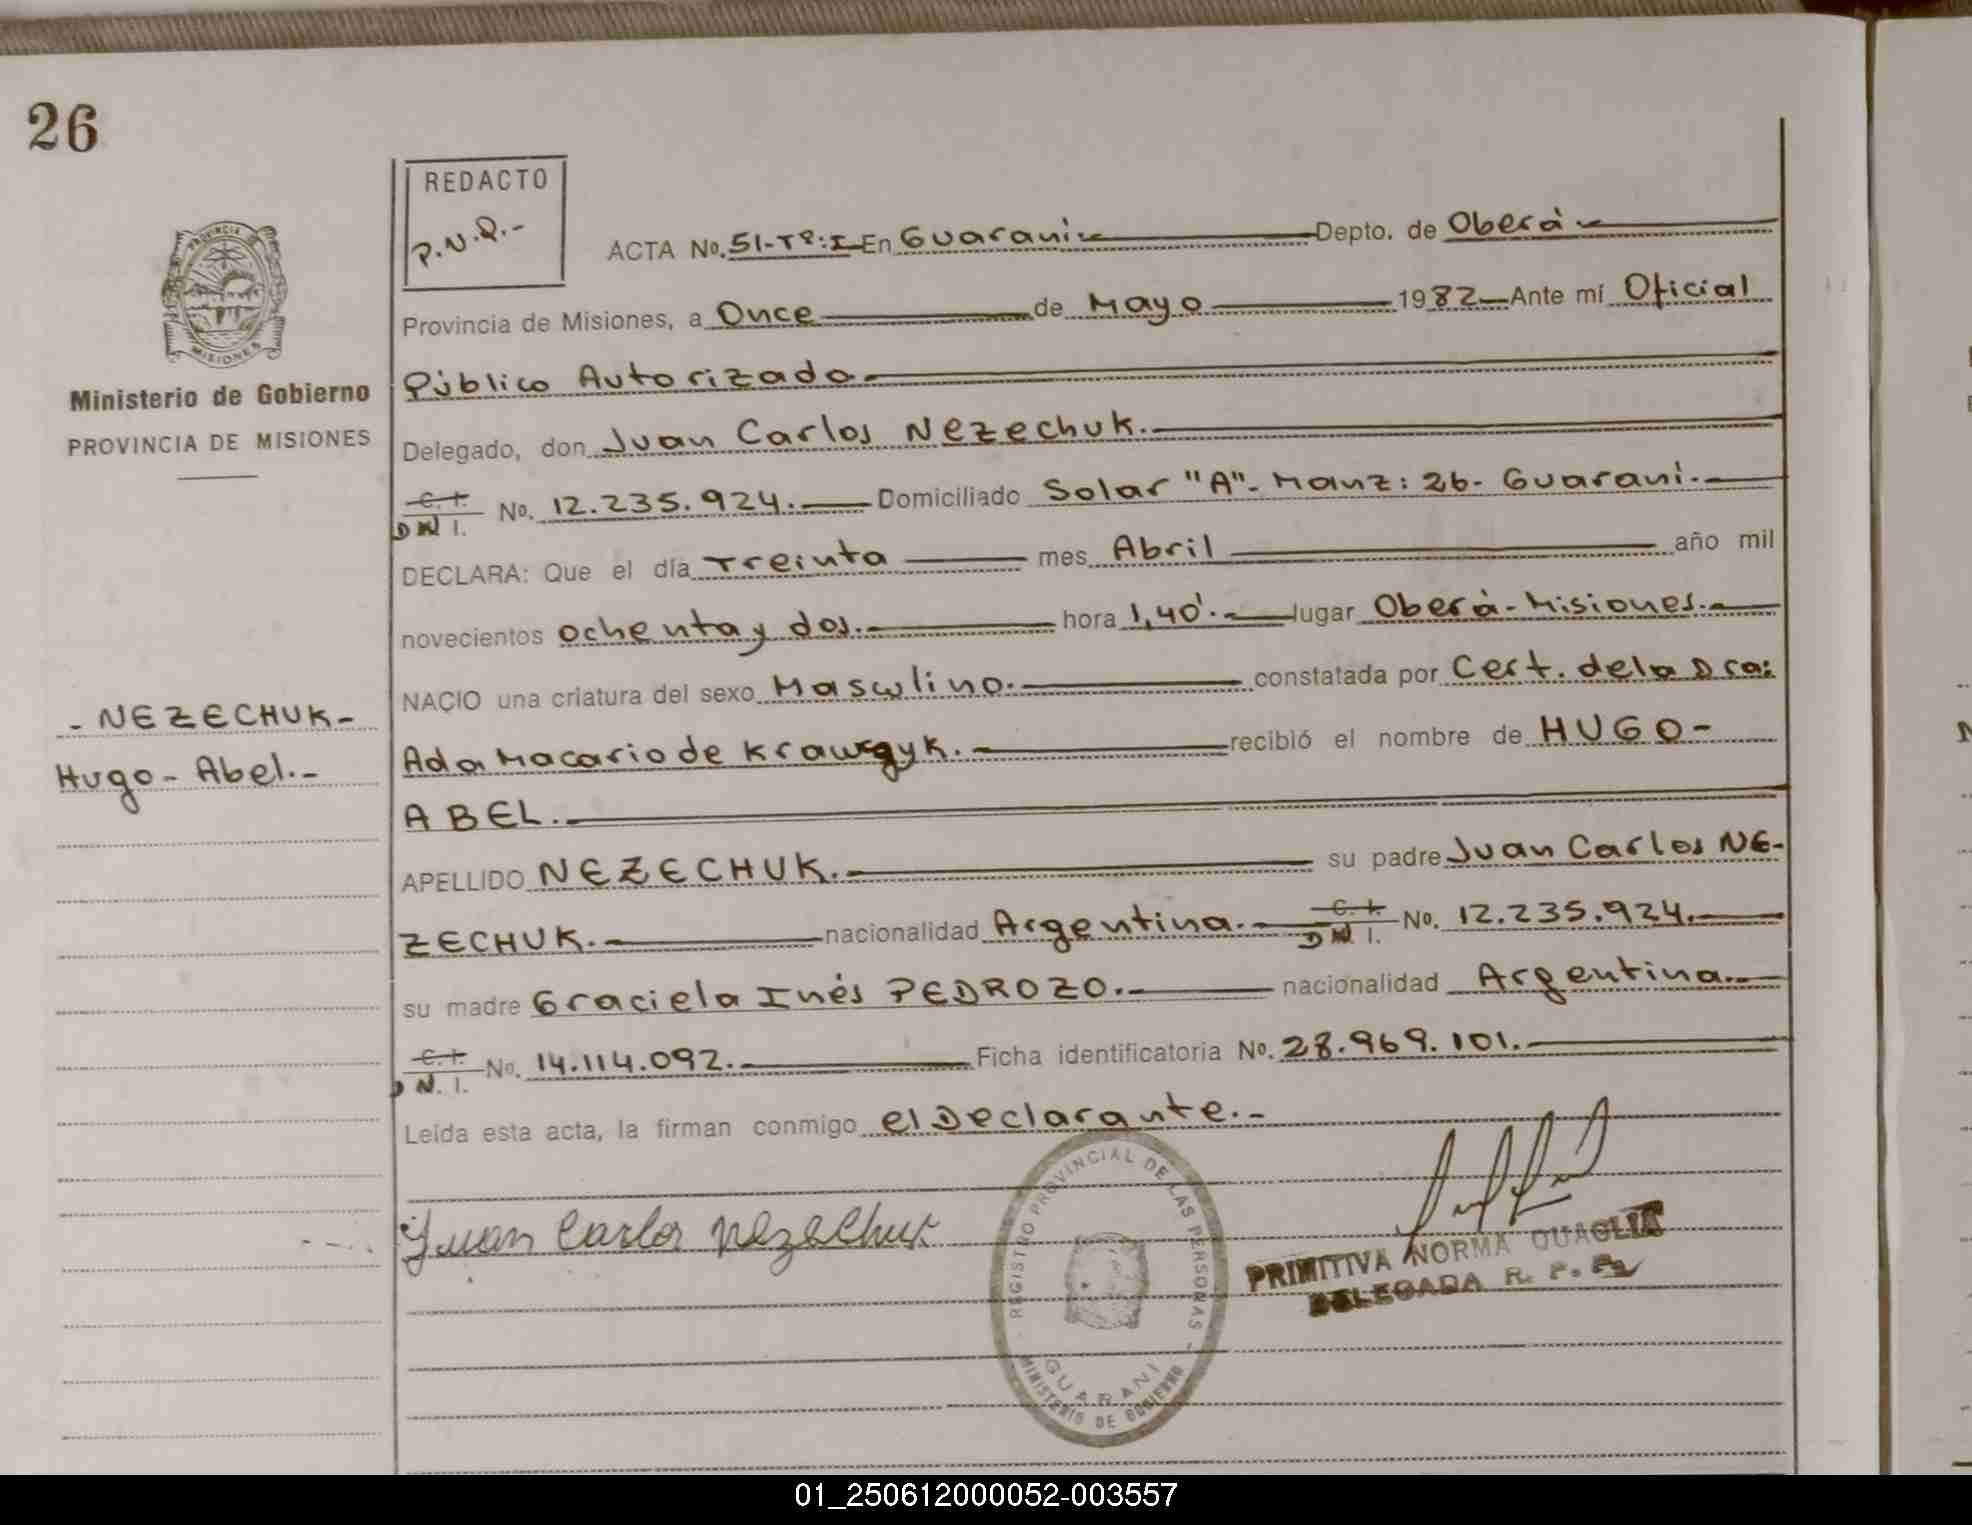 26
REDACTO
P.N.Q.-
PROVINCIA DE
MISIONES
Ministerio de Gobierno
PROVINCIA DE MISIONES
ACTA No. 51-Tº:I En Guaraní Depto. de Oberá
Provincia de Misiones, a Once de Mayo 1982 Ante mí Oficial
Público Autorizado
Delegado, don Juan Carlos Nezechuk.
C. I. No. 12.235.924. Domiciliado Solar "A"- Manz: 26- Guaraní.
D N I.
DECLARA: Que el día Treinta mes Abril año mil
novecientos ochenta y dos. hora 1,40'. lugar Oberá-Misiones.
NACIO una criatura del sexo Masculino. constatada por Cert. de la Dra:
- NEZECHUK-
Hugo- Abel.-
Ada Macario de Krawczyk. recibió el nombre de HUGO-
ABEL.
APELLIDO NEZECHUK. su padre Juan Carlos NE-
ZECHUK. nacionalidad Argentina. C. I. No. 12.235.924.
D N I.
su madre Graciela Inés PEDROZO. nacionalidad Argentina.
C. I. No. 14.114.092. Ficha identificatoria No. 28.969.101.
D N. I.
Leída esta acta, la firman conmigo el Declarante.-
Juan Carlos Nezechuk
REGISTRO PROVINCIAL DE LAS PERSONAS
GUARANI
MINISTERIO DE GOBIERNO
PRIMITIVA NORMA QUAGLIA
DELEGADA R. P. P.
01_250612000052-003557